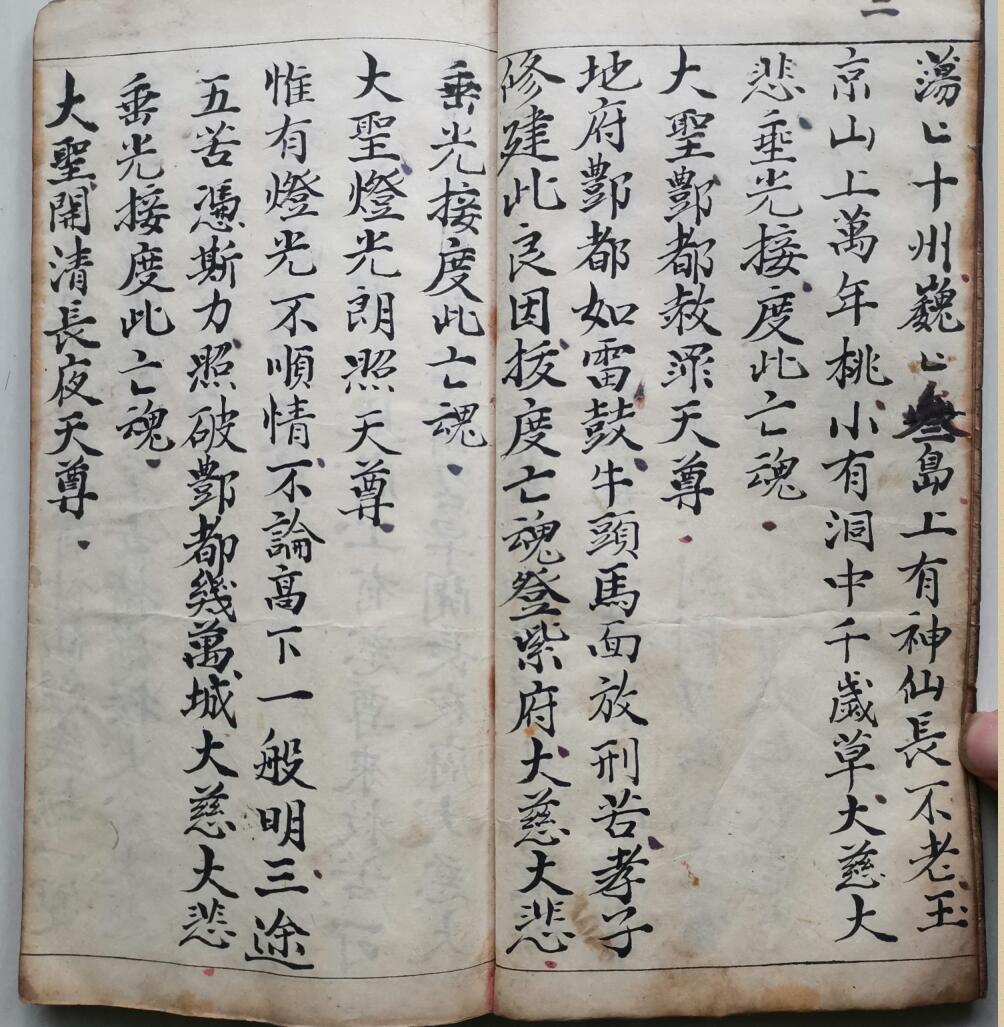 二
蕩〻十州巍〻叁島上有神仙長不老玉
京山上萬年桃小有洞中千歲草大慈大
悲垂光接度此亡魂
大聖酆都赦罪天尊
地府酆都如雷鼓牛頭馬面放刑苦孝子
修建此良因拔度亡魂登紫府大慈大悲
垂光接度此亡魂
大聖燈光朗照天尊
惟有燈光不順情不論高下一般明三途
五苦憑斯力照破酆都幾萬城大慈大悲
垂光接度此亡魂
大聖開清長夜天尊